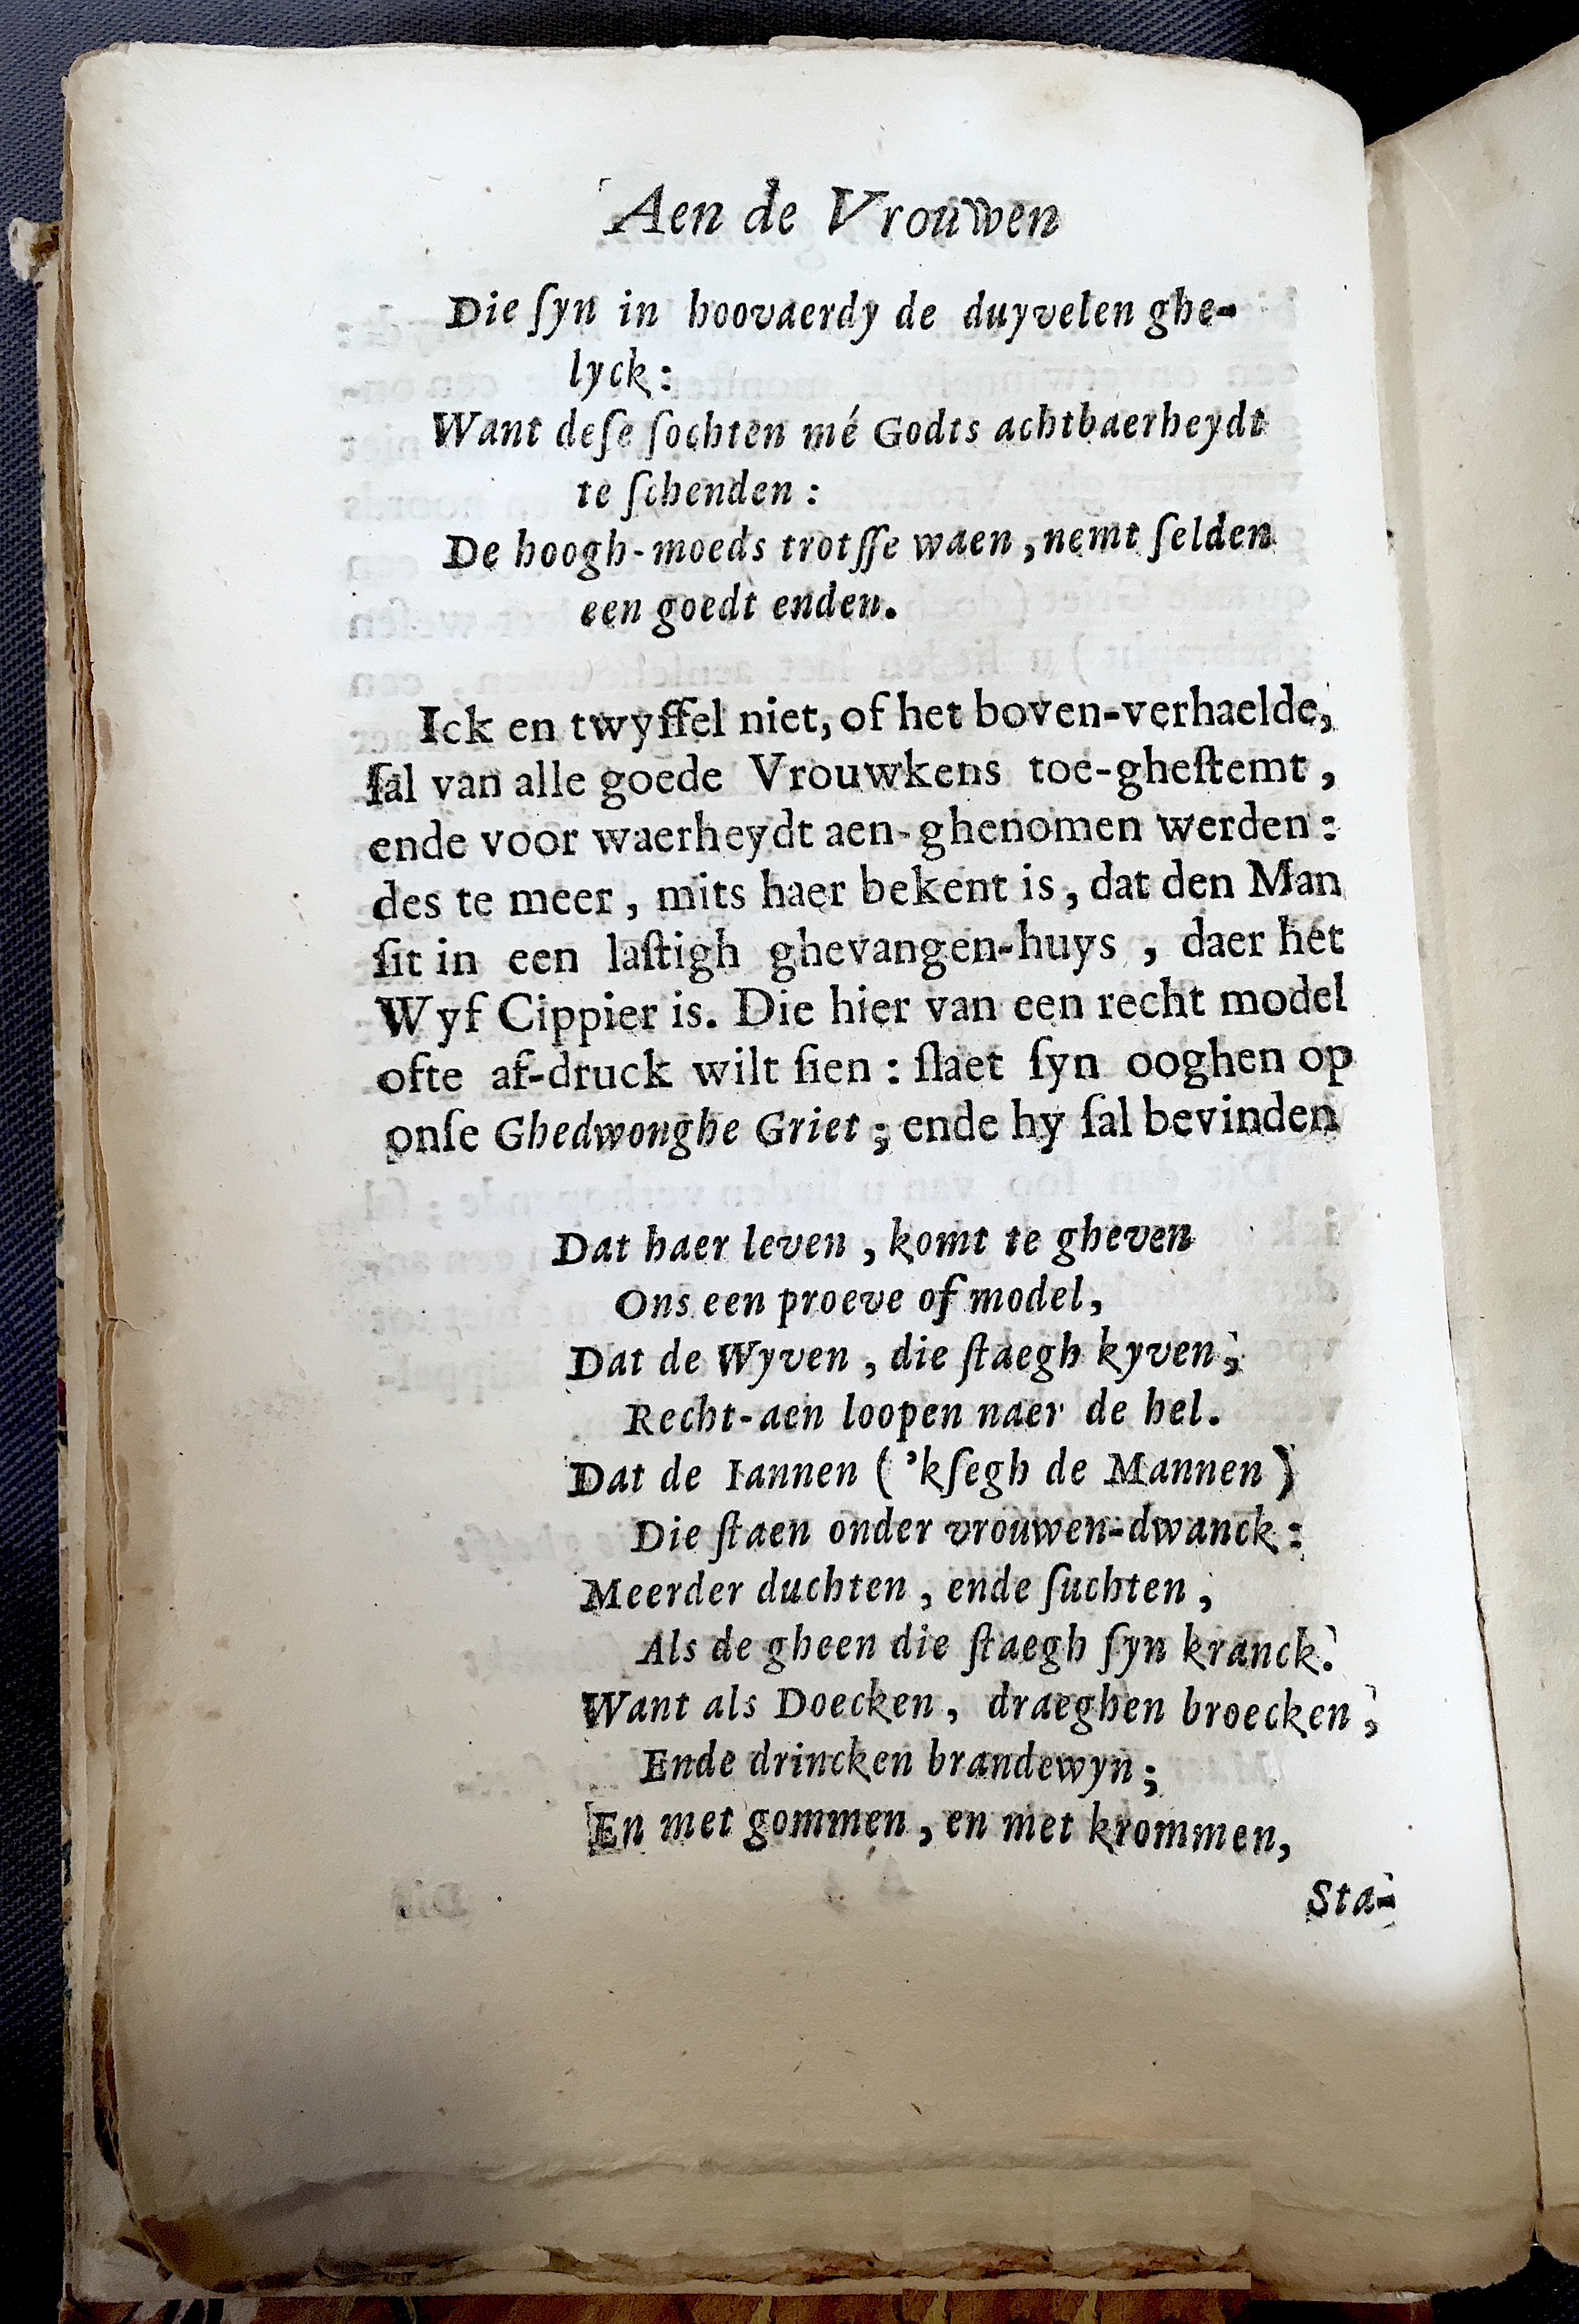 Aen de Vrouwen
Die ſyn in hoovaerdy de duyvelen ghe-
lyck:
Want deſe ſochten mé Godts achtbaerheydt
te ſchenden:
De hoogh-moeds trotſſe waen, nemt ſelden
een goedt enden.
Ick en twyffel niet, of het boven-verhaelde,
ſal van alle goede Vrouwkens toe-gheſtemt,
ende voor waerheydt aen-ghenomen werden:
des te meer, mits haer bekent is, dat den Man
ſit in een laſtigh ghevangen-huys, daer het
Wyf Cippier is. Die hier van een recht model
ofte af-druck wilt ſien: ſlaet ſyn ooghen op
onſe Ghedwonghe Griet; ende hy ſal bevinden
Dat haer leven, komt te gheven
Ons een proeve of model,
Dat de Wyven, die ſtaegh kyven,
Recht-aen loopen naer de hel.
Dat de Iannen ('kſegh de Mannen)
Die ſtaen onder vrouwen-dwanck:
Meerder duchten, ende ſuchten,
Als de gheen die ſtaegh ſyn kranck.
Want als Doecken, draeghen broecken,
Ende drincken brandewyn;
En met gommen, en met krommen,
Sta-